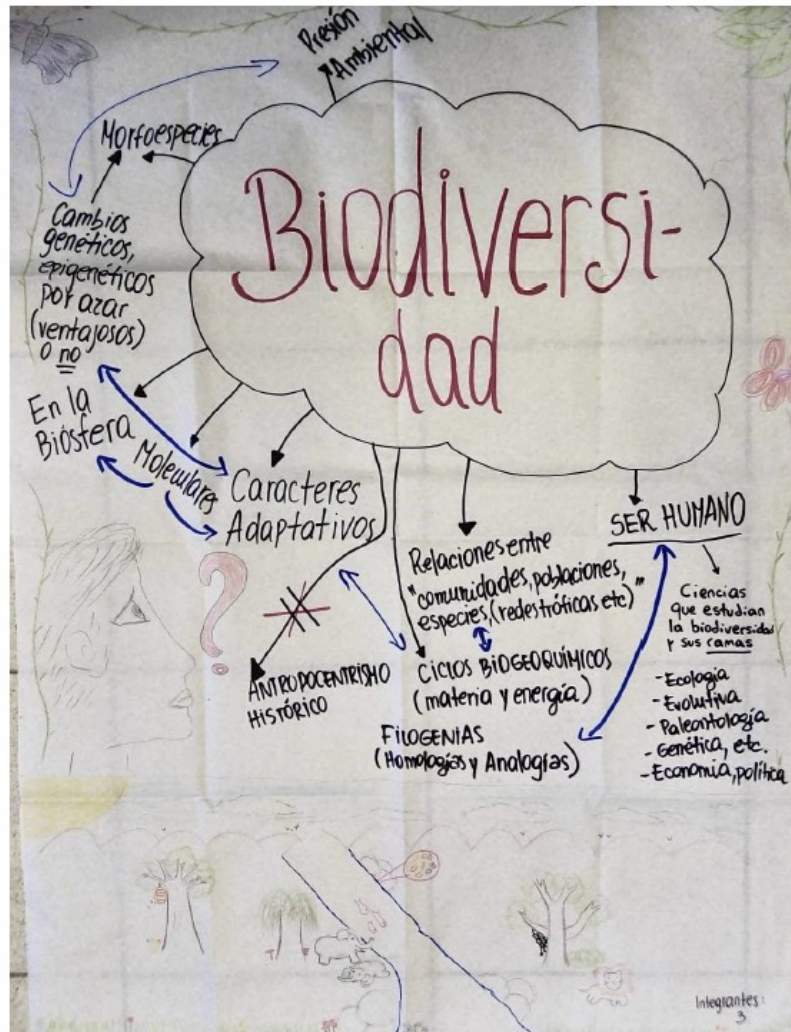 Presión
Ambiental
Morfoespecies
Biodiversi-
dad
Cambios
genéticos,
epigenéticos
por azar
(ventajosos)
o no
En la
Biósfera
Moleculares
Caracteres
Adaptativos
?
Relaciones entre
"comunidades, poblaciones,
especies, (redes tróficas etc)"
CICLOS BIOGEOQUÍMICOS
(materia y energía)
ANTROPOCENTRISMO
HISTÓRICO
FILOGENIAS
(Homologías y Analogías)
SER HUMANO
Ciencias
que estudian
la biodiversidad
y sus ramas
- Ecología
- Evolutiva
- Paleontología
- Genética, etc.
- Economía, política
Integrantes:
3